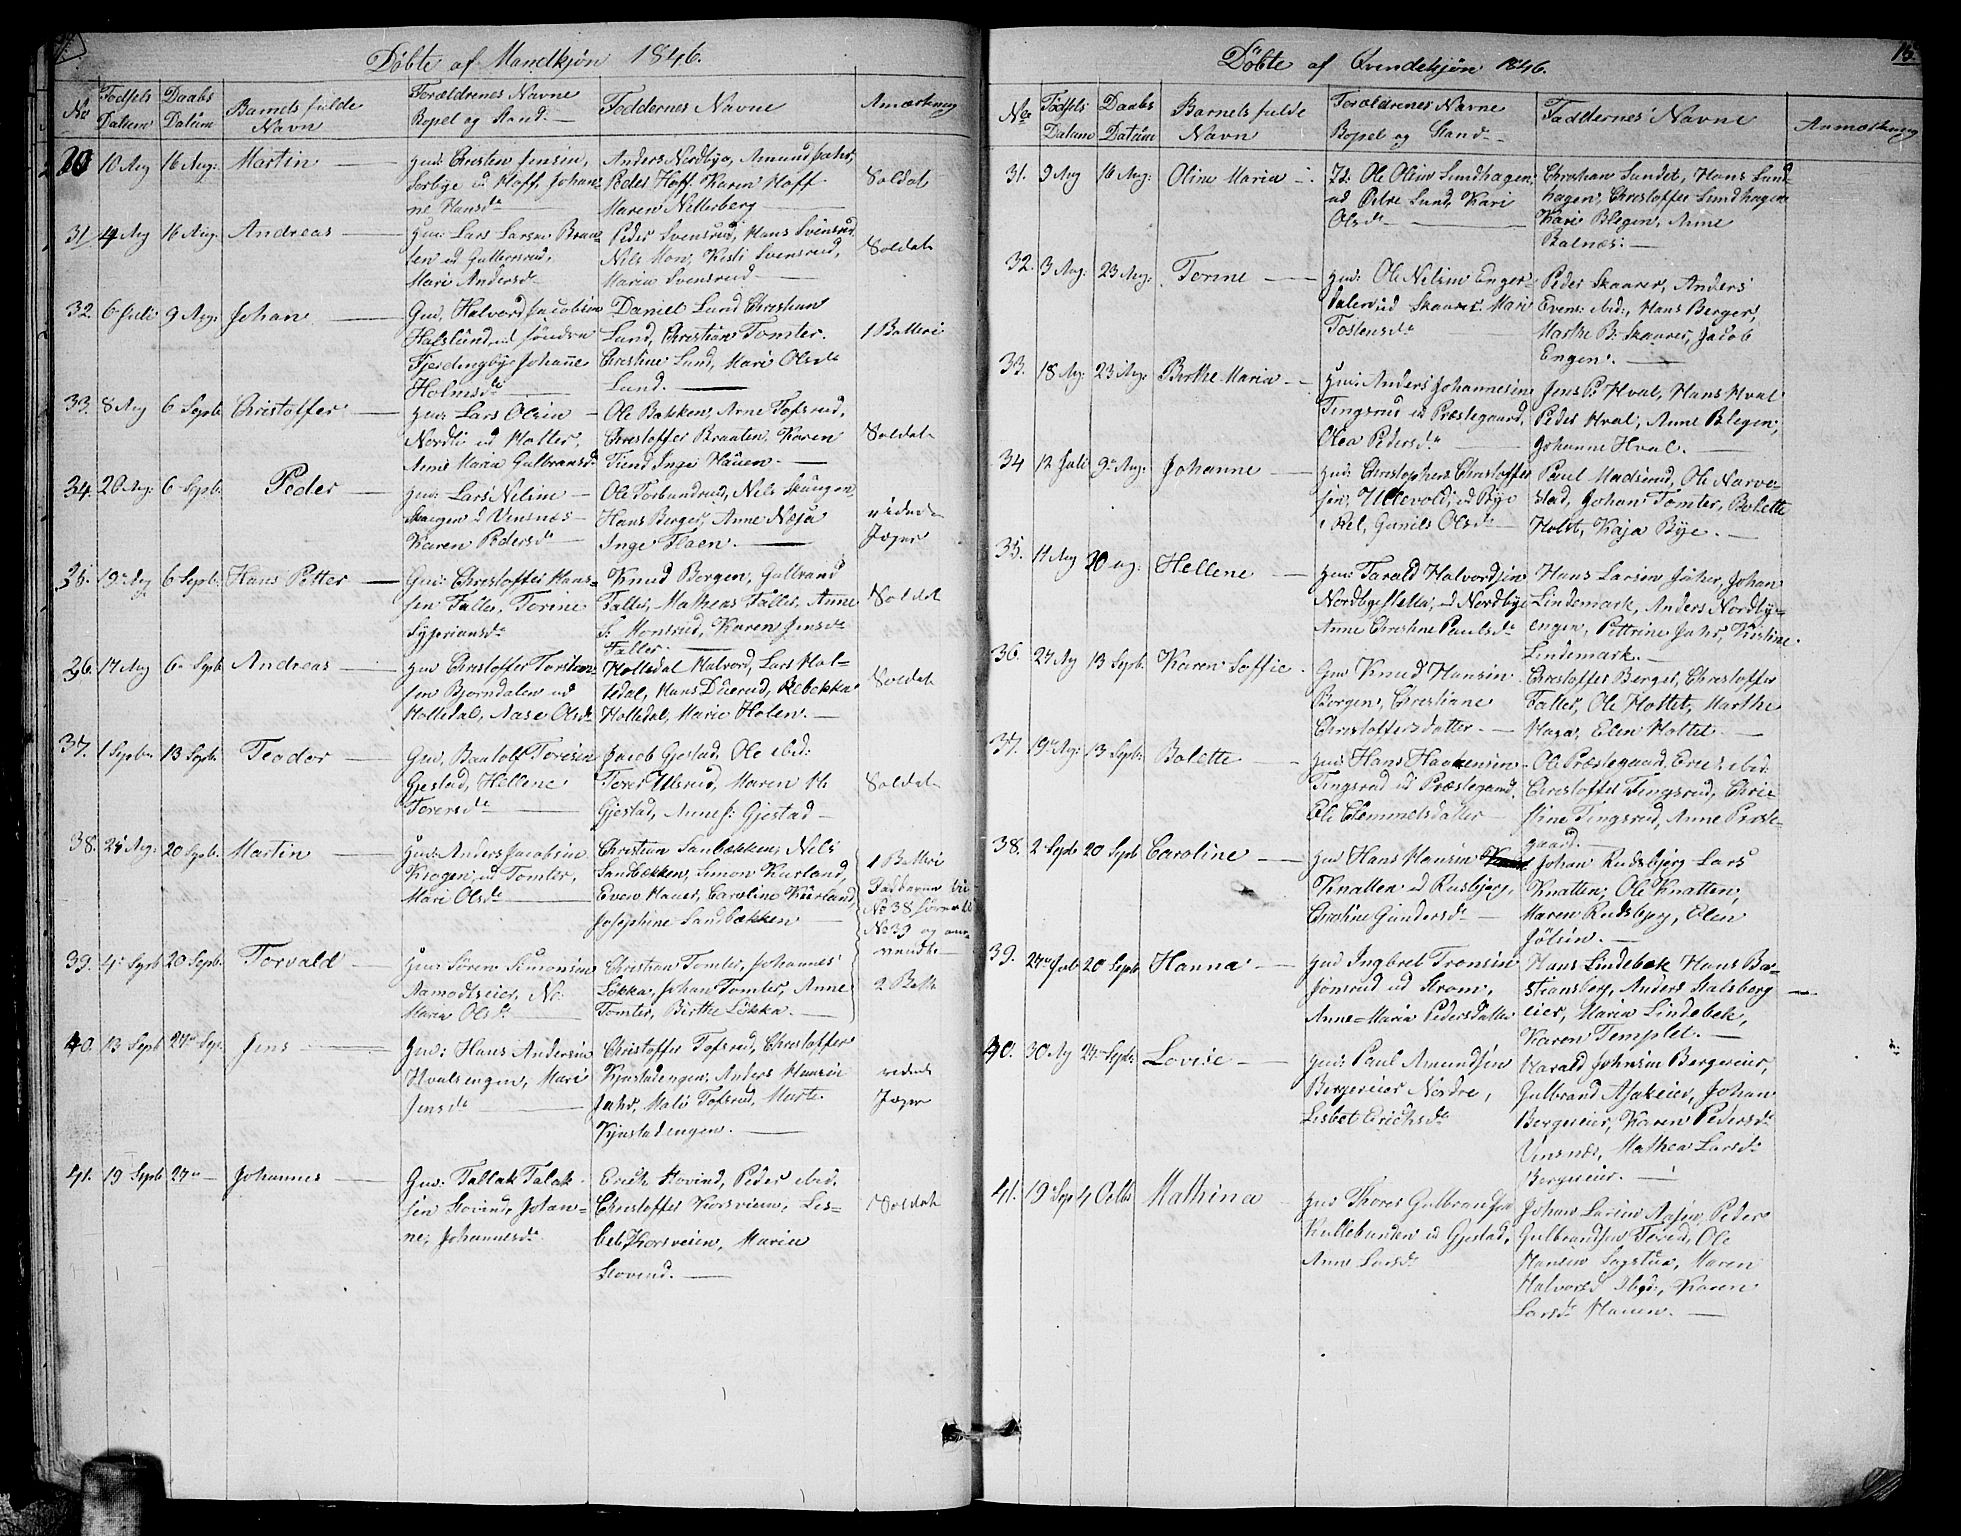 Döbte af Mandkjøn 1846.
No Fødsels Datum Daabs Datum Barnets fulde Navn Forældrenes Navne Bopel og Stand Faddernes Navne Anmærkning
30 10 Aug 16 Aug: Martin
Christen Jensen, Hoff, Johanne Hansd.
Anders Nordbye, Amund Jahr,
Peder Hoff, Karen Hoff
Maren Nitterberg
Soldat
31 4 Aug 16 Aug. Andreas
Lars Larsen
Mari Andersd.
Peder Svensrud, Hans Svensrud
Nils Mon, Kisti Svensrud,
Maria Svensrud
Soldat
32 6 Juli 9 Aug. Johan
Halvord Jacobsen
Halslund
Fjerdingbye Johanne
Holmsd.
Daniel Lund Christian
Lund, Christian Tomter.
Christine Lund, Mari Olsd.
Lund.
1 Batteri
33. 8 Aug 6 Septb Christoffer
Lars Olsen
Nordli ud Holter,
Anne Maria Gulbransd.
Ole Bakken, Arne Tofsrud,
Christoffer Braaten, Karen
Inge Hauen.
Soldat
34. 20 Aug: 6 Septb. Peder
Lars Nilsen
Skaugen Vensnæs
Karen Pedersd.
Nils Skaugen
Hans Berger, Anne Næsja
Inge Haen.
ridende
Jæger
35. 19 Aug 6 Septb. Hans Petter
Christoffer Hansen
Faller, Torine
Syperiansd.
Knud Borgen, Gulbrand
Faller, Mathias Faller, Anne
S: Monsrud, Karen Jensd.
Faller.
Soldat
36. 17 Aug 6 Septb Andreas
Christoffer Torstensen
Bjørndalen ud
Holledal, Aase Olsd.
Holledal Halvord, Lars Holledal,
Hans Duerud, Rebekka
Holledal, Marie Holen.
Soldat
37. 1 Septbr. 13 Septb. Teodor
Torersen
Gjestad, Hellene
Torersd.
Jacob Gjestad, Ole ibid:
Torer Ulsrud, Maren
Gjestad, Anne J: Gjestad
Soldat
38. 24 Aug: 20 Septb. Martin
Anders Jacobsen
Krogen, ud Tomter,
Mari Olsd.
Christian Sanbækken, Nils
Sandbækken, Simon Kurland,
Even Hauer, Caroline Kurland,
Josephine Sandbækken
1 Batteri
No 38
No 39 og
39. 4 Septb 20 Septb. Torvald
Søren Simonsen
Aamodtseier,
Maria Olsd.
Christian Tomter, Johannes
Løkka, Johan Tomter, Anne
Tomter, Birthe Løkka.
2 Batt
40. 13 Septb 27 Sept. Jens
Hans Andersen
Hvalsengen, Mari
Jensd.
Christoffer Tofsrud, Christoffer
Kjnstadengen, Anders Hansen
Jahr, Mali Tofsrud, Marte
Kjnstadengen.
ridende
Jæger
41. 19 Septb 27 Johannes
Tallak Talaksen
Hovind, Johanne,
Johannesd.
Erich Hovind, Peder ibid.
Christoffer Korsveien, Lisbet,
Korsveien, Maria
Hovind.
Soldat
15.
Döbte af Qvindekjøn 1846.
No Fødsels Datum Daabs Datum Barnets fulde Navn Forældrenes Navne Bopel og Stand Faddernes Navne Anmærkning
31. 9 Aug 16 Aug: Oline Maria
Ole Olsen Sundhagen
ud Østre Lund, Kari
Olsd.
Christian Sundet, Hans Sundhagen,
Christoffer Sundhagen
Kari Blegen, Anne
Balnæs:
32. 3 Aug. 23 Aug: Torine
Ole Nilsen Engerdalen
ud Skaarer. Mari
Tostensd.
Peder Skaarer, Anders
Evens: ibid; Hans Berger,
Marthe B: Skaarer, Jacob
Engen.
33. 18 Aug. 23 Aug: Berthe Maria
Anders Johannesen
Tingsrud ud Præstegaard,
Olea Pedersd.
Jens P: Hval, Hans Hval
Peder Hval, Anne Blegen,
Johanne Hval.
34 12 Juli 9 Aug: Johanne
Christophers Christoffersen,
Ullevold, ud Bye
Gunild Olsd.
Paul Madsrud, Ole Narvestad,
Johan Tomter, Bolette
Holst, Kaja Bye.
35. 11 Aug 30 Aug: Hellene
Tarald Halvordsen
Nordbyesletta, ud Nordbye
Anne Christine Paulsd.
Hans Larsen Jahr, Johan
Lindemark, Anders Nordbyengen,
Pettrine Jahr, Kristine
Lindemark.
36. 27 Aug 13 Septb. Karen Soffie
Knud Hansen
Borgen, Christiane
Christoffersdatter.
Christoffer Berger, Christoffer
Faller, Ole Holtet, Marthe
Haga, Elen Holtet.
37. 19 Aug: 13 Septb: Bolette
Hans Haakensen
Tingsrud ud Præstegaard.
Eli Clemmetsdatter
Ole Præstegaard, Eric: ibid:
Christoffer Tingsrud, Christine
Tingsrud, Anne Præstegaard.
38. 2 Septb 20 Septb Caroline
Hans Hansen
Knatten ud Rusbjerg,
Christine Gundersd.
Johan Rudsbjerg Lars
Knatten, Ole Knatten,
Maren Rudsbjerg, Elen
Jølsen.
39. 27 Juli 20 Septb Hanna
Ingbret Tronsen
Jonsrud ud Strøm,
Anne=Maria Pedersdatter
Hans Lindebek Hans
Anders Stalsberg
eier, Maria Lindebek,
Karen Templet.
40. 30 Aug 27 Septb. Lovise
Paul Amundsen
Bergereier Nordre,
Lisbet Erichsd.
Harald Johnsen Bergereier,
Gulbrand Asakeier, Johan
Bergereier, Karen Pedersd.
Vensnæs, Mathea Larsd.
Bergereier.
41. 19 Sep 4 Octbr Mathina
Thorer Gulbrandsen
Kullebunden ud Gjestad,
Anne Larsd.
Johan Larsen Aasen, Peder
Gulbrandsen Tøved, Ole
Hansen Sagstua, Maren
Halvorsd Ibid:, Karen
Larsd. Hauen.